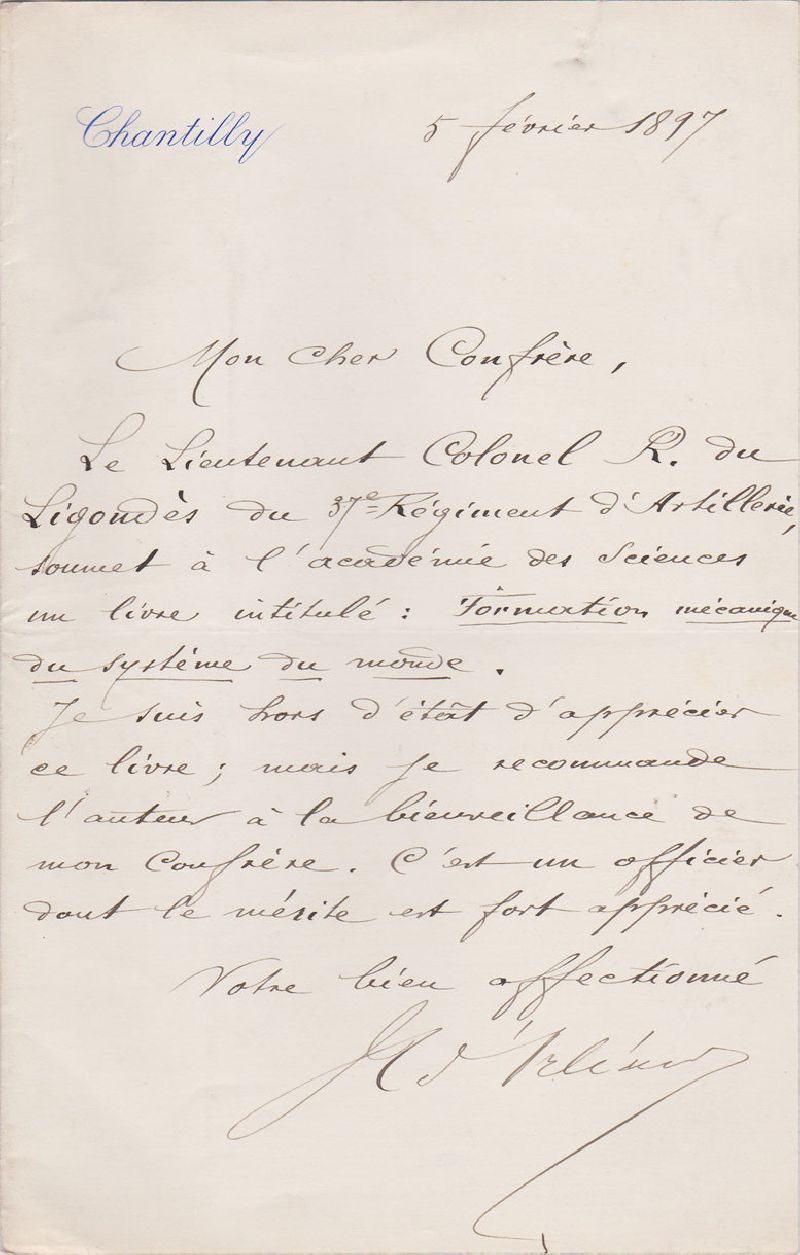 Chantilly
5 février 1897
Mon cher Confrère,
Le Lieutenant Colonel R. du
Ligondès du 37e Régiment d'Artillerie,
soumet à l'académie des Sciences
un livre intitulé : Formation mécanique
du système du monde.
Je suis hors d'état d'apprécier
ce livre ; mais je recommande
l'auteur à la bienveillance de
mon Confrère. C'est un officier
dont le mérite est fort apprécié.
Votre bien affectionné
H d'Orléans